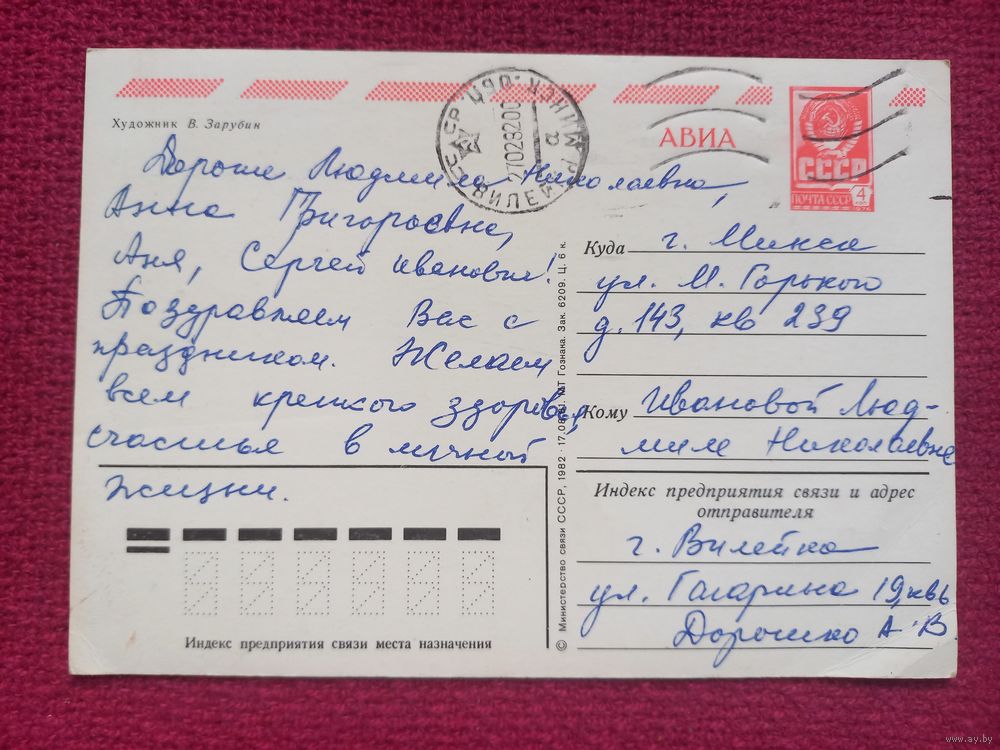 Художник В. Зарубин
АВИА
СССР
ПОЧТА СССР
4
ВИЛЕЙ
2702820
Дорогие Людмила Николаевна,
Анна Григорьевна,
Аня, Сергей Иванович!
Поздравляем Вас с
праздником. Желаем
всем крепкого здоровья,
счастья в личной
жизни.
Куда г. Минск
ул. М. Горького
д. 143, кв 239
Кому Ивановой Люд-
миле Николаевне
Индекс предприятия связи и адрес
отправителя
г. Вилейка
ул. Гагарина 19, кв6
Дорошко А. В.
Индекс предприятия связи места назначения
© Министерство связи СССР, 1982 · 17.08.81. МТ Гознака. Зак. 6209. Ц. 6 к.
www.ay.by